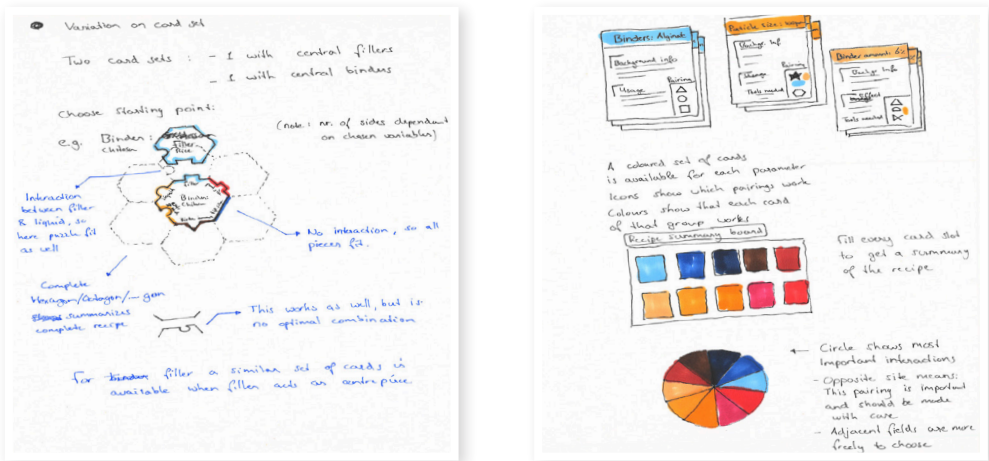 Variation on card set
Two card sets : - 1 with central fillers
- 1 with central binders
Choose starting point:
(note: nr. of sides dependant
on chosen variables)
e.g. Binder:
Chitosan
Filler
Rice
Filler
Binder:
Chitosan
Interaction
between filler
& liquid, so
here puzzle fit
as well
No interaction, so all
pieces fit.
Complete
Hexagon/Octagon/...gon
summarizes
complete recipe
This works as well, but is
no optimal combination
For filler a similar set of cards is
available when filler acts as centrepiece
Binders: Alginate
Background info
Usage
Pairing
Particle size:
Backgr. Inf
Pairing
Tools needed
Binder amount: 6%
Backgr. Info
Effect
Tools needed
A coloured set of cards
is available for each parameter
Icons show which pairings work
Colours show that each card
of that group works
Recipe summary board
Fill every card slot
to get a summary
of the recipe
Circle shows most
Important interactions
- Opposite site means:
This pairing is important
and should be made
with care
- Adjacent fields are more
freely to choose